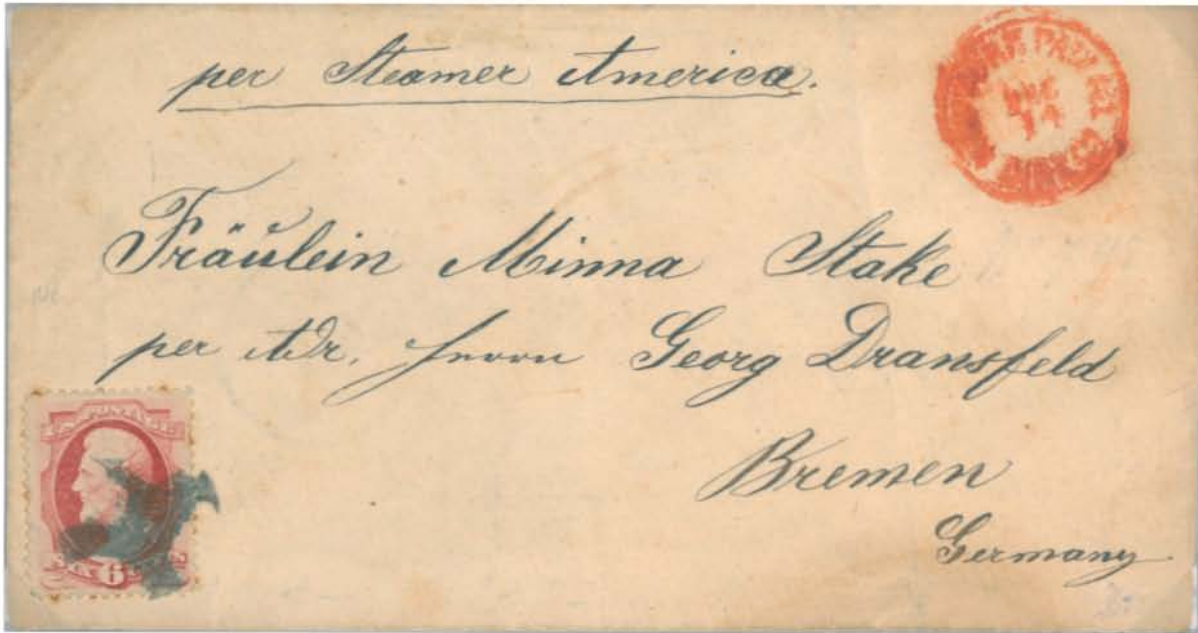 per Steamer America.
PAID ALL
14
DIRECT
Fräulein Minna Stake
per Adr. Herrn Georg Dransfeld
Bremen
Germany
SIX 6 CENTS